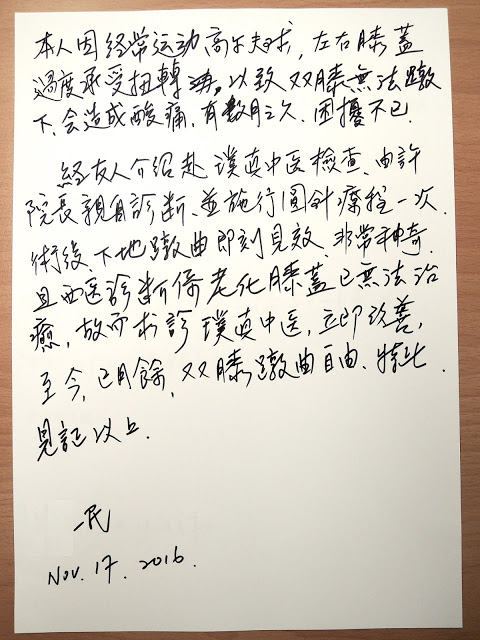 本人因経常运动高尔夫球，左右膝蓋
過度承受扭轉，以致双膝無法蹲
下，会造成酸痛，有數月之久，困擾不已．
経友人介绍赴璞真中医檢查，由許
院長親自診断，並施行圆针療程一次．
術後，下地蹲曲即刻見效，非常神奇．
且西医诊断係老化膝蓋已無法治
癒，故而求診璞真中医，立即改善，
至今，已月餘，双膝蹲曲自由．特此
見証以上．
一民
Nov. 17. 2016.